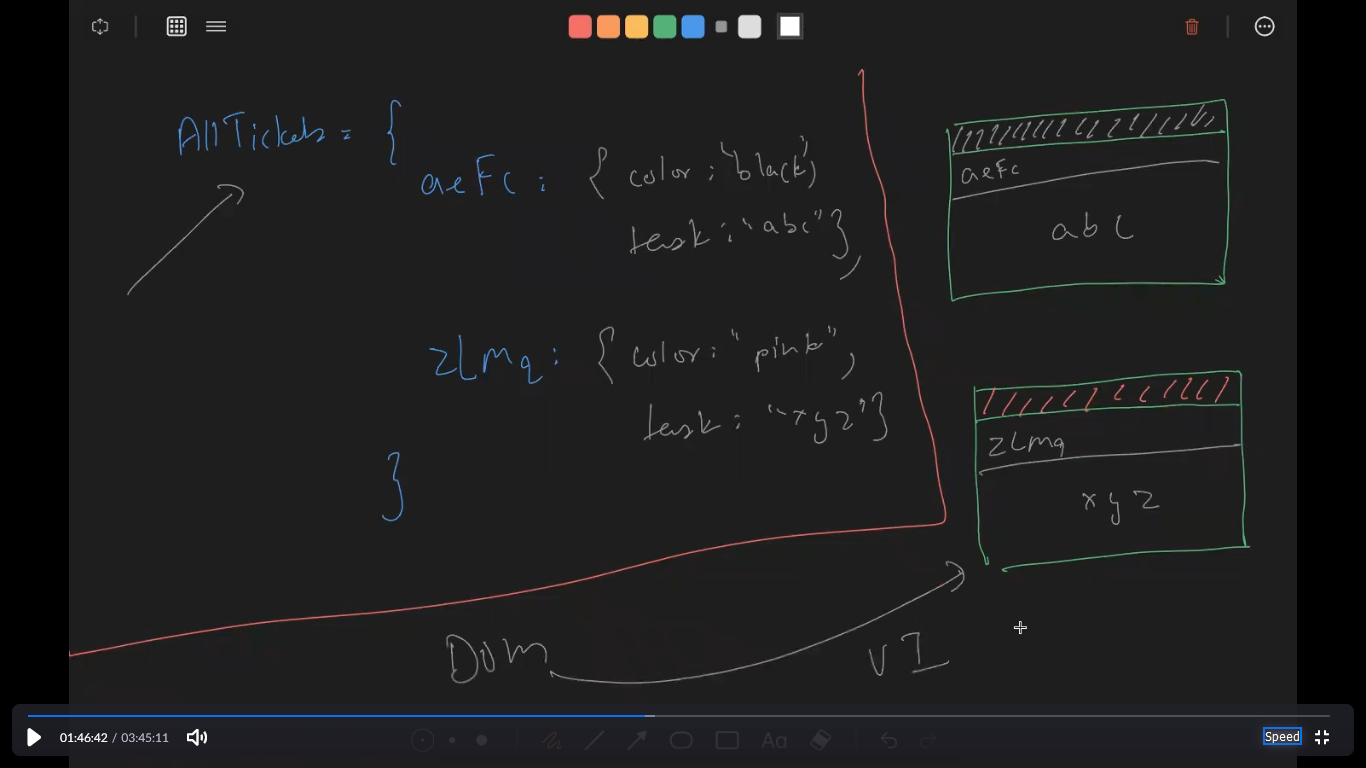 AllTickets = {
aeFc : { color : "black"
task : "abc" },
zLmq : { color : "pink",
task : "xyz" }
}
aeFc
abc
zLmq
xyz
Dom
UI
01:46:42 / 03:45:11
Aa
Speed